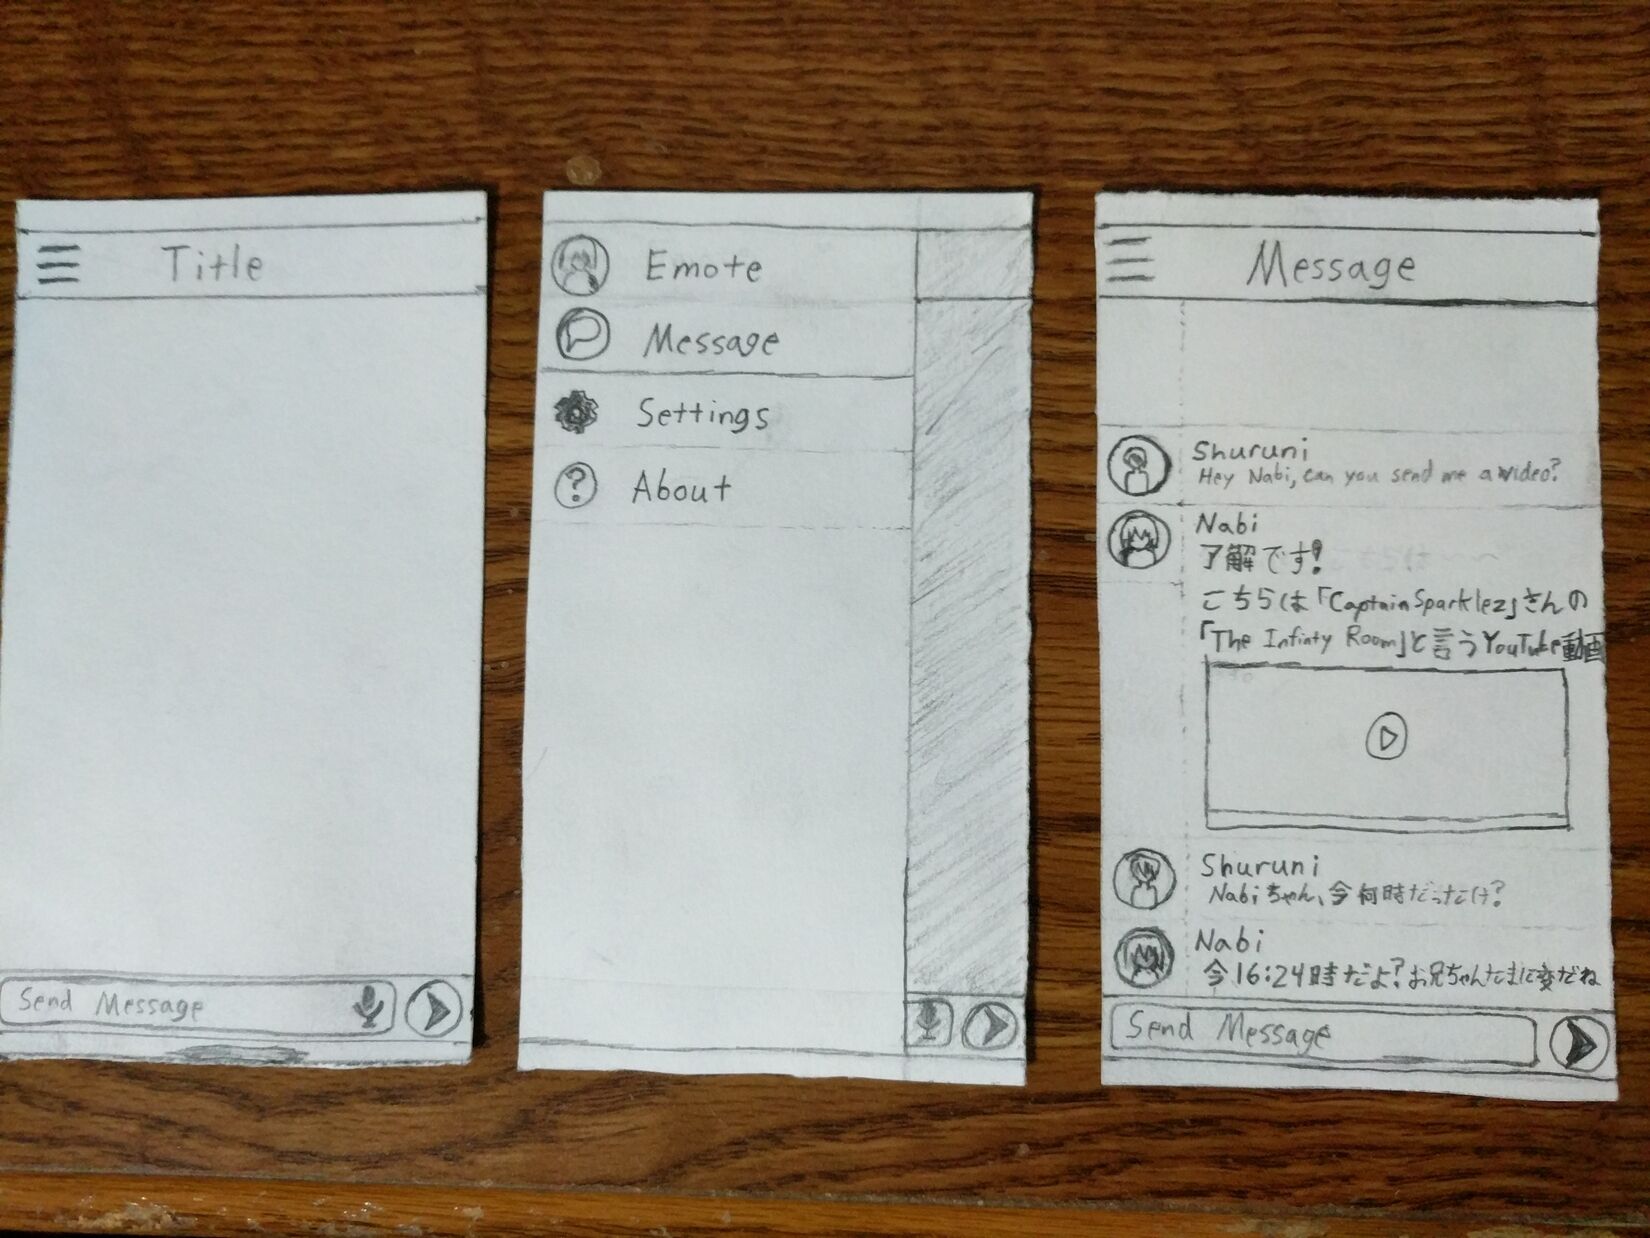 Title
Send Message
Emote
Message
Settings
?
About
Message
Shuruni
Hey Nabi, can you send me a video?
Nabi
了解です!
こちらは「CaptainSparklez」さんの
「The Infinty Room」と言うYouTube動画
Shuruni
Nabiちゃん、今何時だったけ?
Nabi
今16:24時だよ?お兄ちゃんたまに変だね
Send Message